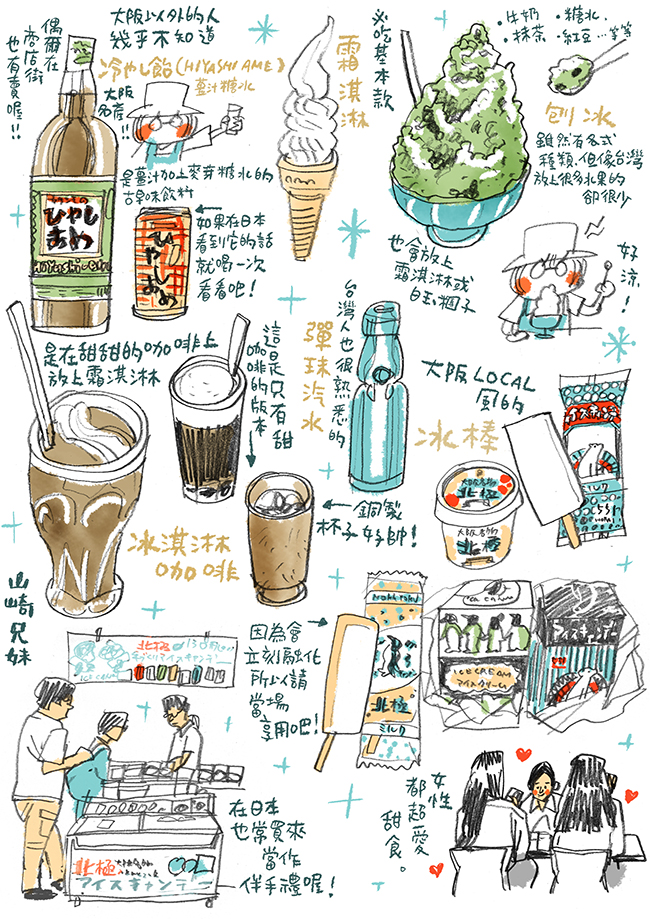 偶爾在
商店街
也有賣喔!!
大阪以外的人
幾乎不知道
冷やし飴(HIYASHI AME)
薑汁糖水
大阪
名產!!
ひやし
あめ
是薑汁加上麥芽糖水的
古早味飲料
ひやし
あめ
如果在日本
看到它的話
就喝一次
看看吧!
霜淇淋
必吃基本款
・牛奶
・糖水
・抹茶
・紅豆…等等
刨冰
雖然有各式
種類,但像台灣
放上很多水果的
卻很少
也會放上
霜淇淋或
白玉糰子
好涼!
是在甜甜的咖啡上
放上霜淇淋
這是只有甜
咖啡的版本
冰淇淋
咖啡
銅製
杯子好帥!
台灣人也很熟悉的
彈珠汽水
大阪LOCAL
風的
冰棒
アイスキャンデー
ミルク
551
大阪名物
北極
大阪名物
北極
山崎兄妹
因為會
立刻融化
所以請
當場
享用吧!
HOKKYOKU
北極
ミルク
ICE CREAM
ICE CREAM
アイスクリーム
アイスキャンデー
北極
アイスキャンデー
ICE CANDY
北極
アイスキャンデー
在日本
也常買來
當作
伴手禮喔!
女性
都超愛
甜食。